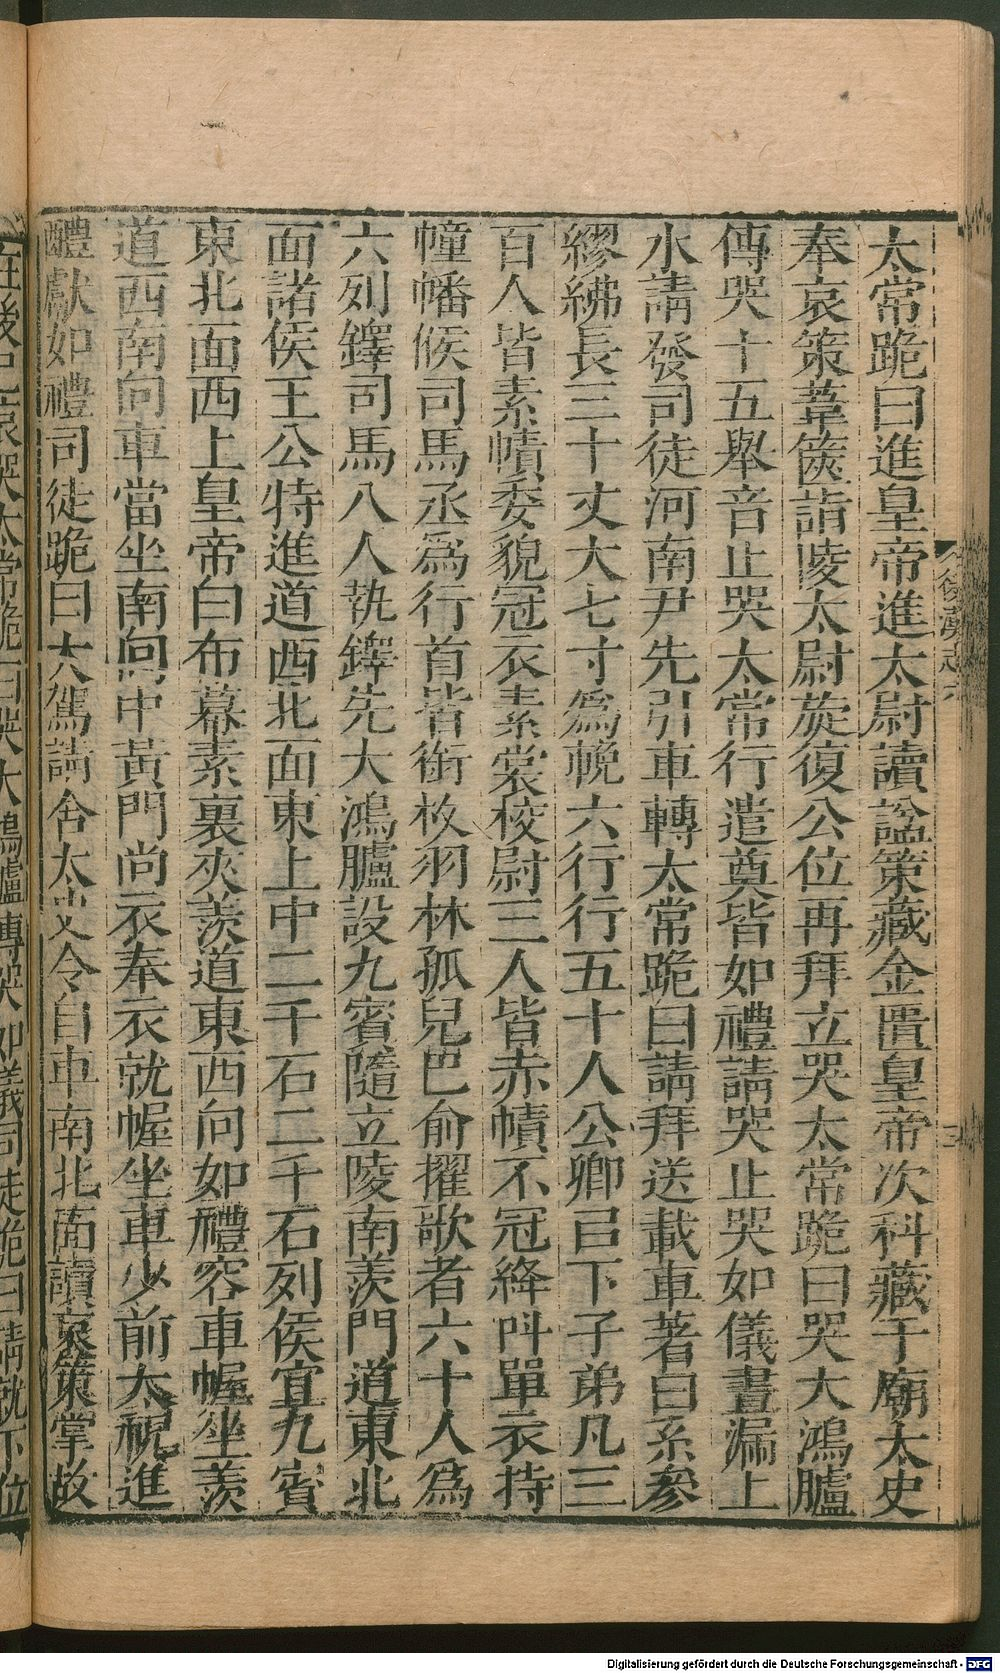 太常跪曰進皇帝進太尉讀諡策藏金匱皇帝次科藏于廟太史
奉哀策葦篋詣陵太尉旋復公位再拜立哭太常跪曰哭大鴻臚
傳哭十五舉音止哭太常行遣奠皆如禮請哭止哭如儀晝漏上
水請發司徒河南尹先引車轉太常跪曰請拜送載車著白系參
繆紼長三十丈大七寸爲輓六行行五十人公卿㠯下子弟凡三
百人皆素幘委貌冠衣素裳校尉三人皆赤幘不冠絳科單衣持
幢幡候司馬丞爲行首皆銜枚羽林孤兒巴俞擢歌者六十人爲
六列鐸司馬八人執鐸先大鴻臚設九賓隨立陵南羨門道東北
面諸侯王公特進道西北面東上中二千石二千石列侯宜九賓
東北面西上皇帝白布幕素裏夾羨道東西向如禮容車幄坐羨
道西南向車當坐南向中黃門尚衣奉衣就幄坐車少前太祝進
醴獻如禮司徒跪曰大駕請舍太史令自車南北面讀哀策掌故
在後已哀哭太常跪曰哭大鴻臚傳哭如儀司徒跪曰請就下位
後漢志六
三
Digitalisierung gefördert durch die Deutsche Forschungsgemeinschaft - DFG